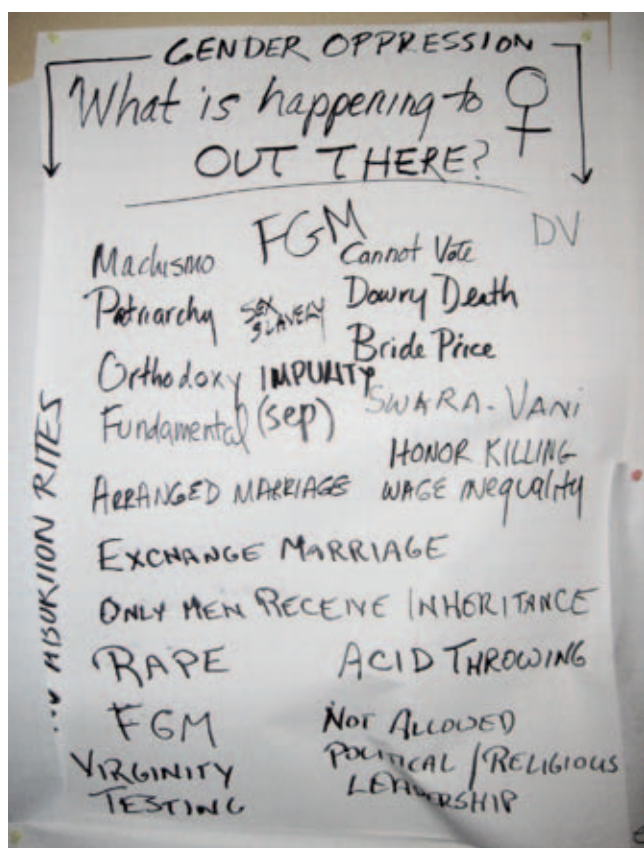 GENDER OPPRESSION
What is happening to ♀
OUT THERE?
FGM
DV
Machismo
Cannot Vote
Patriarchy
SEX SLAVERY
Dowry Death
Bride Price
Orthodoxy IMPURITY
Fundamental (sep)
SWARA-VANI
HONOR KILLING
ARRANGED MARRIAGE
WAGE INEQUALITY
EXCHANGE MARRIAGE
ONLY MEN RECEIVE INHERITANCE
RAPE
ACID THROWING
FGM
NOT ALLOWED
POLITICAL / RELIGIOUS
LEADERSHIP
VIRGINITY
TESTING
RITES